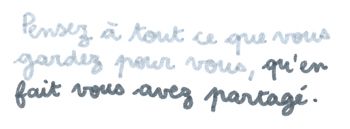 Pensez à tout ce que vous
gardez pour vous, qu'en
fait vous avez partagé.